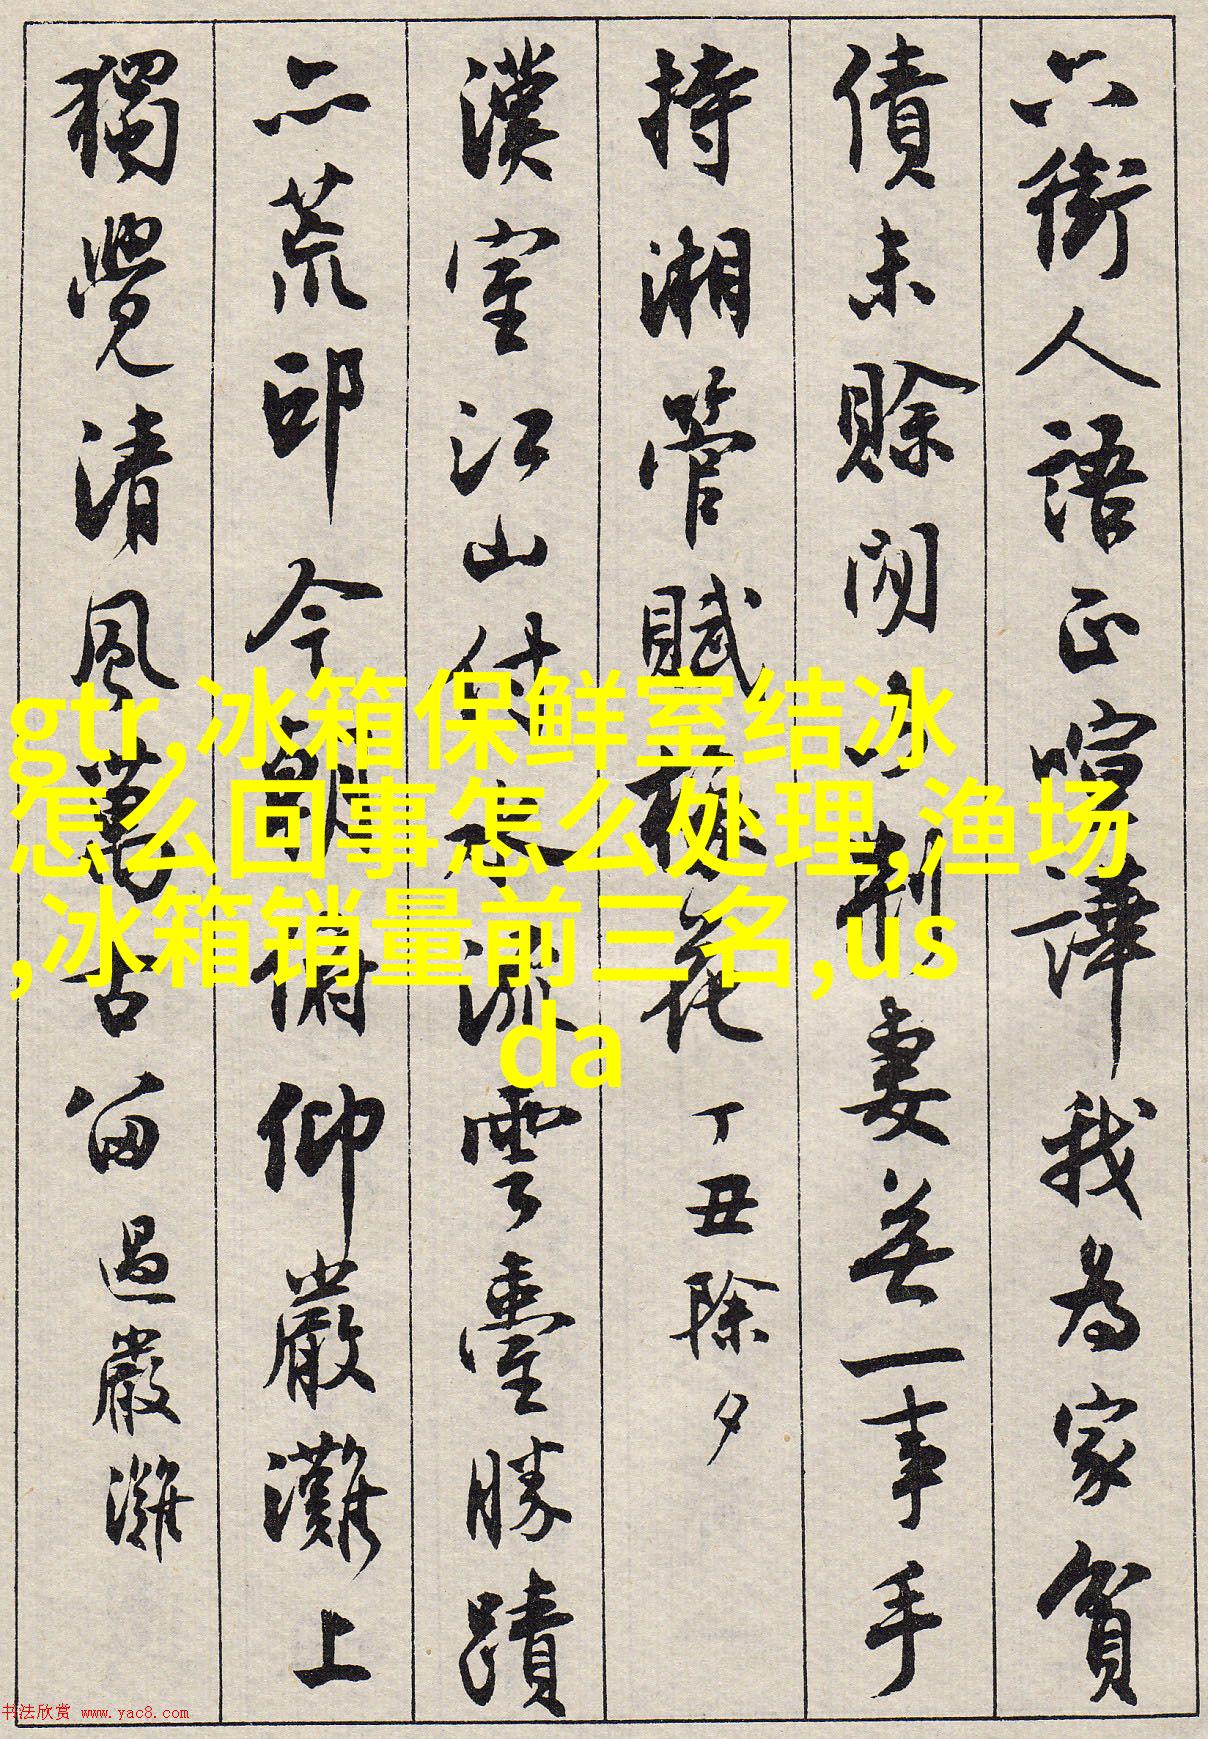 六街人語正喧譁我為家貧
債未賒閉戶制妻無一事手
持湘管賦梅花 丁丑除夕
漢室江山付水流雲臺勝蹟
亦荒邱今朝俯仰嚴灘上
獨覺清風萬古留 過嚴灘
gtr,冰箱保鲜室结冰
怎么回事怎么处理,渔场
,冰箱销量前三名,us
da
书法欣赏 www.yac8.com